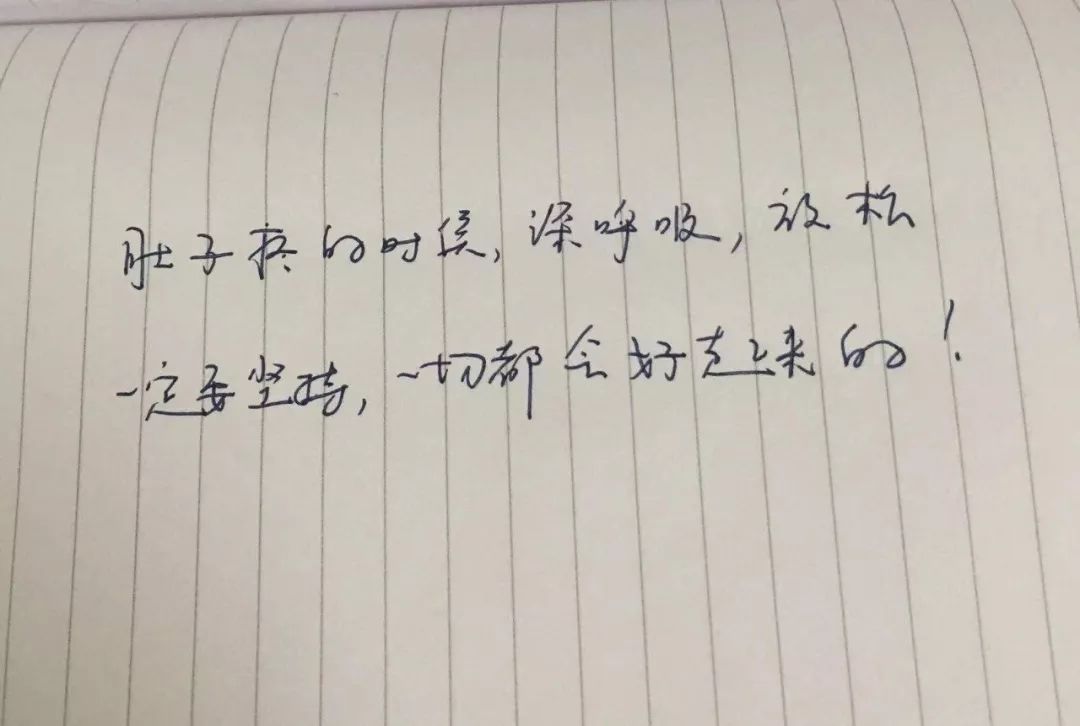 肚子疼的时候,深呼吸,放松
一定要坚持,一切都会好起来的!